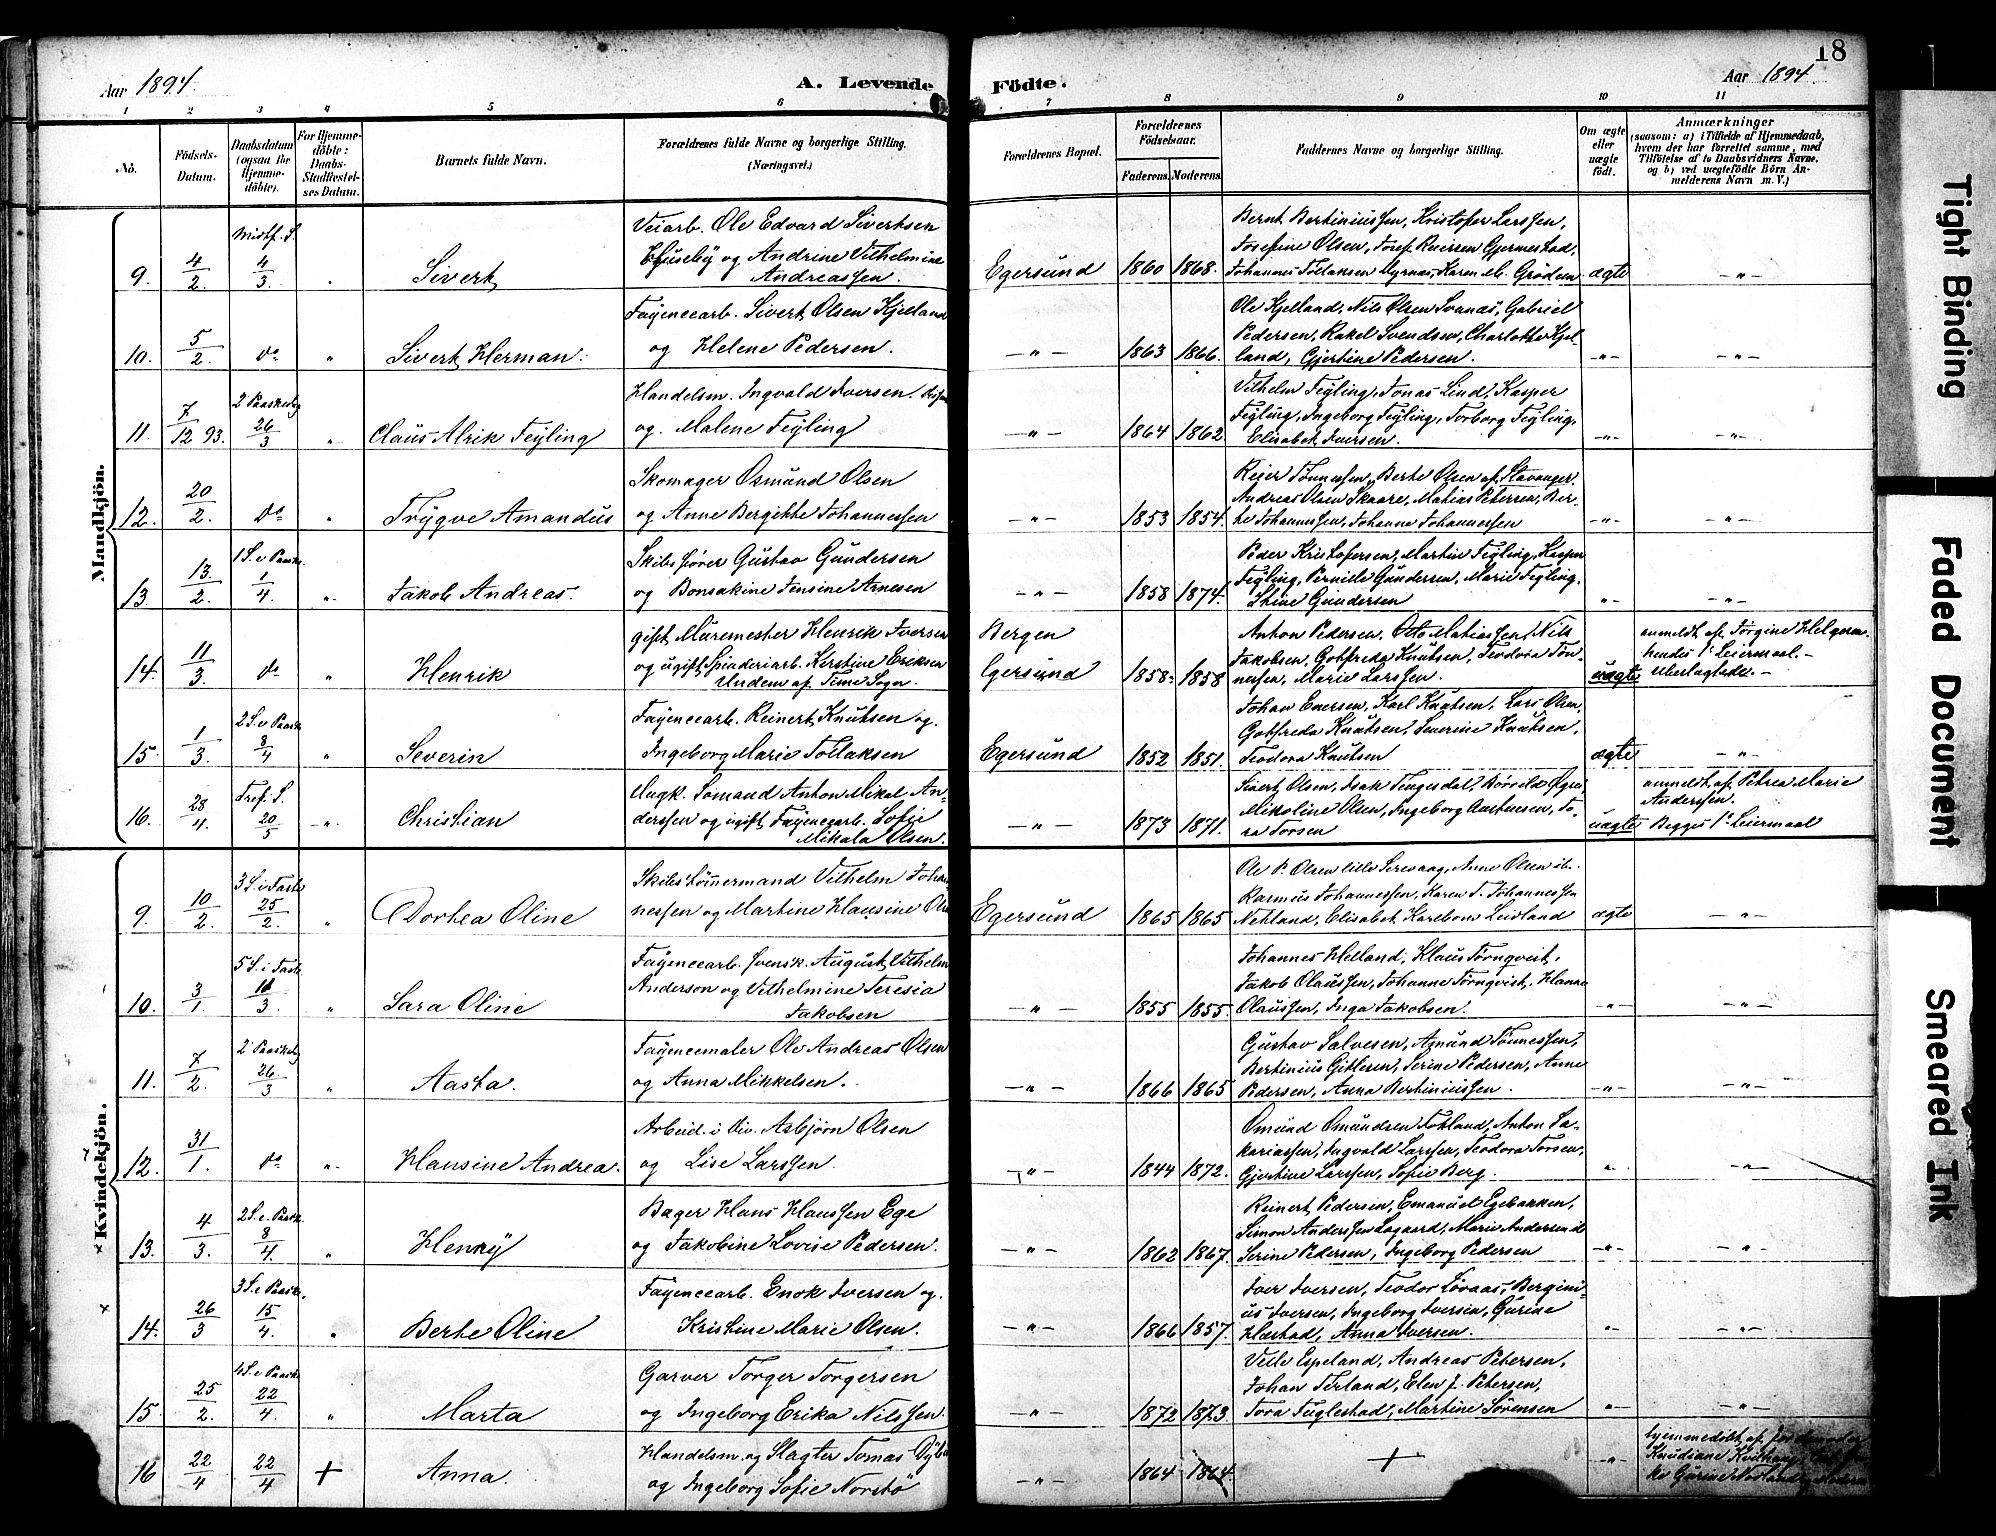 18
Aar 1894.
A. Levende Födte.
Aar 1894
1 2 3 4 5 6 7 8 9 10 11
No.
Födsels-Datum.
Daabsdatum (ogsaa for Hjemmedöbte).
For Hjemmedöbte: Daabs-Stadfæstelses Datum.
Barnets fulde Navn.
Forældrenes fulde Navne og borgerlige Stilling. (Næringsvei.)
Forældrenes Bopæl.
Forældrenes Födselsaar.
Faderens. Moderens.
Faddernes Navne og borgerlige Stilling.
Om ægte eller uægte födt.
Anmærkninger
(saasom: a) i Tilfælde af Hjemmedaab, hvem der har forrettet samme, med Tilföielse af to Daabsvidners Navne, og b) ved uægtefödte Börn Anmelderens Navn m.V.)
Mandkjön.
9. 4/2. Midtf. S. 4/3. " Sivert
Veiarb. Ole Edvard Sivertsen
Huseby og Andrine Vilhelmine
Andreassen.
Egersund 1860 1868.
Bernt Bertiniussen, Kristofer Larssen,
Josefine Olsen, Josef Reiersen Gjermestad,
Johannes Tollaksen Myrnæs, Karen M. Grödem
ægte —"—
10. 5/2. do " Sivert Herman.
Fayencearb. Sivert Olsen Kjelland
og Helene Pedersen.
—"— 1863 1866.
Ole Kjelland, Nils Olsen Svanæs, Gabriel
Pedersen, Rakel Svendsen, Charlotte Kjel-
land, Gjertine Pedersen.
—"— —"—
11. 7/12 93. 2 Paaskedg 26/3 " Claus Alrik Feyling
Handelsm. Ingvald Iversen
og Malene Feyling
—"— 1864 1862
Vilhelm Feyling, Jonas Lind, Kasper
Feyling, Ingeborg Feyling, Torborg Feyling,
Elisabet Iversen.
—"— —"—
12. 20/2. do " Trygve Amandus
Skomager Osmund Olsen
og Anne Bergitte Johannessen
—"— 1853 1854.
Reier Tönnessen, Berte Olsen af Stavanger,
Andreas Olsen Skaare, Matias Petersen, Ber-
te Johannessen, Johanne Johannessen
—"— —"—
13. 13/2. 1 S. e Paaske 1/4. " Jakob Andreas.
Skibsförer Gustav Gundersen
og Bonsakine Jensine Arnesen
—"— 1858 1874.
Peder Kristofersen, Martin Feyling, Kasper
Feyling, Pernille Gundersen, Marie Feyling,
Stine Gundersen
" —"—
14. 11/3. do " Henrik
gift Muremester Henrik Iversen
og ugift Spinderiarb. Kerstine Eriksen
Undem af Time Sogn.
Bergen
Egersund 1858. 1858
Anton Pedersen, Otto Matiassen, Nils
Jakobsen, Gotfreda Knutsen, Teodora Tön-
nessen, Marie Larssen.
uægte
anmeldt af Jorgine Helgesen.
hendes 1ste Leiermaal.—
15. 1/3. 2 S. e Paask 8/4 " Severin
Fayencearb. Reinert Knutsen og
Ingeborg Marie Tollaksen
Egersund 1852 1851.
Johan Evensen, Karl Knutsen, Lars Olsen,
Gotfreda Knutsen, Severine Knutsen,
Teodora Knutsen
ægte —"—
16. 28/4. Tref. S. 20/5 —"— Christian
Ungk. Sömand Anton Mikal An-
derssen og ugift Fayencearb. Sofie
Mikala Olsen.
—"— 1873 1871.
Sivert Olsen, Isak Tengesdal, Börnild Ogrei,
Mikoline Olsen, Ingeborg Aastuesen, To-
ra Torsen
uægte
anmeldt af Petrea Marie
Anderssen.
Begges 1ste Leiermaal
Kvindekjön.
9. 10/2. 3 S. i Faste 25/2. " Dorthea Oline
Skibstömmermand Vilhelm Johan-
nessen og Martine Klausine Ols
Egersund 1865 1865
Ole P. Olsen lille Seresvaag, Anne Olsen ib.
Rasmus Johannessen, Karen T. Johannessen
Netland, Elisabet Karlbom Leidland
ægte —"—
10. 3/1. 5 S. i Faste 11/3. " Sara Oline
Fayencearb. svensk August Vilhelm
Anderson og Vilhelmine Teresia
Jakobsen
—"— 1855 1855.
Johannes Helland, Klaus Törnqvist,
Jakob Olaussen, Johanne Törnqvist, Hanna
Olaussen, Inga Jakobsen.
—"— —"—
11. 7/2. 2 Paaskedg 26/3 " Aasta.
Fayencemaler Ole Andreas Olsen
og Anna Mikkelsen.
—"— 1866 1865
Gustav Salvesen, Asmund Tönnessen,
Bertinius Gitlesen, Serine Pedersen, Anne
Pedersen, Anna Bertiniussen.
—"— —"—
12. 31/1. do " Hansine Andrea.
Arbeid. i div. Asbjörn Olsen
og Lise Larssen.
—"— 1844 1872.
Omund Omundsen Totland, Anton Sa-
kariassen, Ingvald Larssen, Teodora Torsen,
Gjertine Larssen, Sofie Berg.
" —"—
13. 4/3. 2 S. e. Paask. 8/4. " Henny
Bager Hans Hanssen Ege
og Jakobine Lovise Pedersen.
—"— 1862 1867.
Reinert Pedersen, Emanuel Egebakken,
Simon Anderssen Lagaard, Marie Andersen
Serine Pedersen, Ingeborg Pedersen
—"— —"—
14. 26/3 3 S. e Paaske, 15/4. " Berte Oline
Fayencearb. Enok Iversen og
Kristine Marie Olsen.
—"— 1866 1857.
Iver Iversen, Teodor Lövaas, Bergini-
us Iversen, Ingeborg Iversen, Gurine
Hæstad, Anna Iversen.
" —"—
15. 25/2. 4 S. e Paaske 22/4. " Marta
Garver Torger Torgersen
og Ingeborg Erika Nilssen.
—"— 1872 1873.
Velle Espeland, Andreas Petersen,
Johan Terland, Elen J. Petersen,
Tora Fuglestad, Martine Sörensen
" —"—
16 22/4 22/4 + Anna.
Handelsm. og Slagter Tomas
og Ingeborg Sofie Norstö
—"— 1864 1864.
+
"
hjemmedöbt af Jordemoder
Knudsine
Gurine
Tight Binding
Faded Document
Smeared Ink